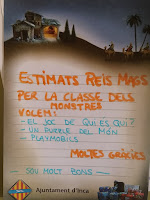 Estimats Reis Mags
PER LA CLASSE DELS
MONSTRES
VOLEM:
- EL JOC DE QUI ES QUI?
- UN PUZLE DEL MÓN
- PLAYMOBILS
MOLTES GRÀCIES
SOU MOLT BONS
Ajuntament d'Inca